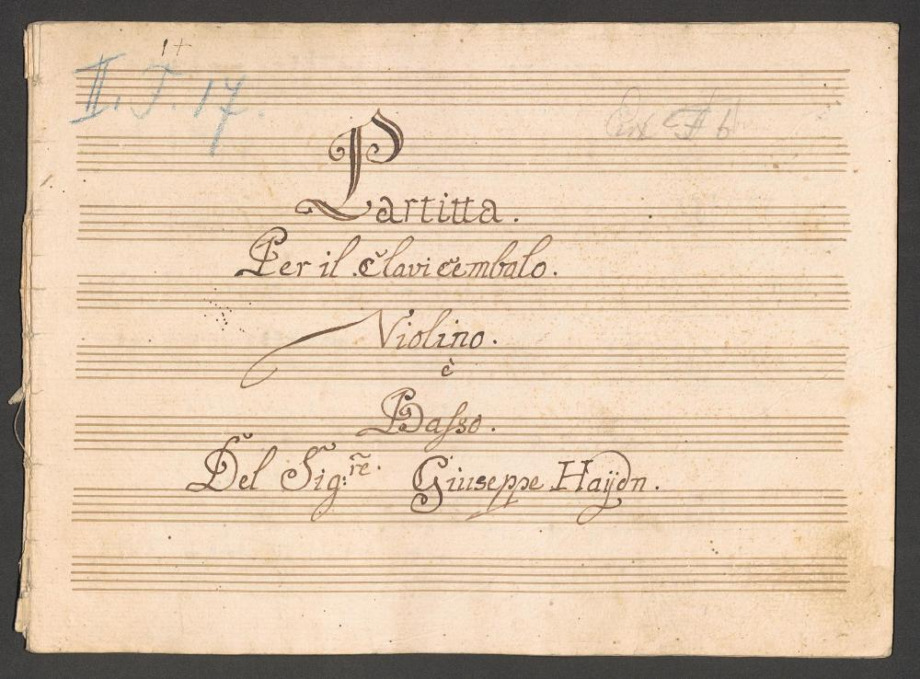 1+
II. J. 17.
Partitta.
Per il Clavicembalo.
Violino.
è
Basso.
Del Sig:re. Giuseppe Haÿdn.